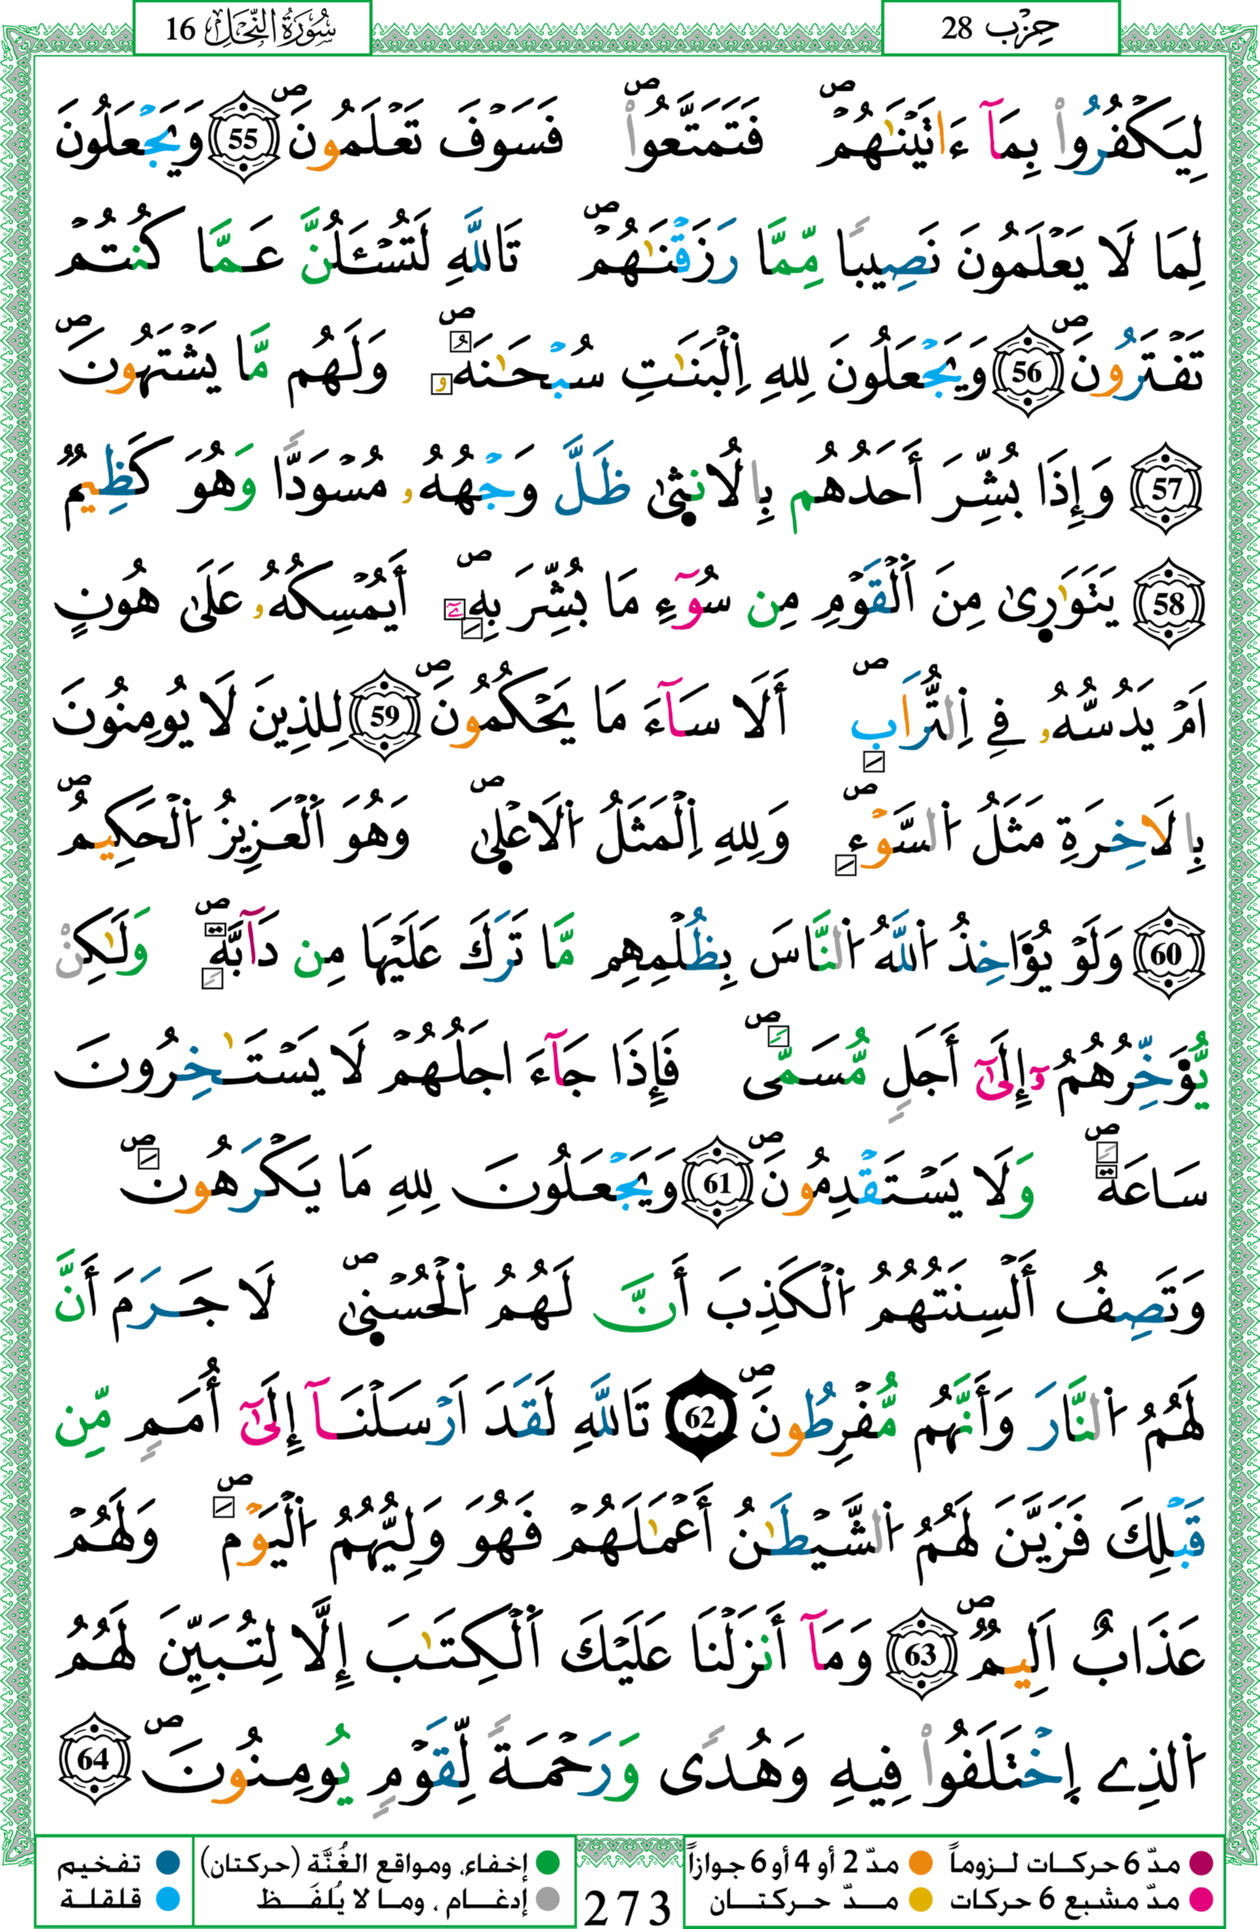 سُورَةُ النَّحْلِ 16
حِزْب 28
لِيَكْفُرُواْ بِمَآ ءَاتَيْنَٰهُمْۖ فَتَمَتَّعُواْۖ فَسَوْفَ تَعْلَمُونَۖ 55 وَيَجْعَلُونَ
لِمَا لَا يَعْلَمُونَ نَصِيباٗ مِّمَّا رَزَقْنَٰهُمْۖ تَاللَّهِ لَتُسْـَٔلُنَّ عَمَّا كُنتُمْ
تَفْتَرُونَۖ 56 وَيَجْعَلُونَ لِلهِ اِ۬لْبَنَٰتِ سُبْحَٰنَهُۥۖ وَلَهُم مَّا يَشْتَهُونَۖ
57 وَإِذَا بُشِّرَ أَحَدُهُم بِالُانث۪ىٰ ظَلَّ وَجْهُهُۥ مُسْوَدّاٗ وَهُوَ كَظِيمٞ
58 يَتَوَٰر۪ىٰ مِنَ اَ۬لْقَوْمِ مِن سُوٓءِ مَا بُشِّرَ بِهِۦٓۖ أَيُمْسِكُهُۥ عَلَىٰ هُونٍ
اَمْ يَدُسُّهُۥ فِے اِ۬لتُّرَابِۖ أَلَا سَآءَ مَا يَحْكُمُونَۖ 59 لِلذِينَ لَا يُومِنُونَ
بِالَاخِرَةِ مَثَلُ اُ۬لسَّوْءِۖ وَلِلهِ اِ۬لْمَثَلُ اُ۬لَاعْل۪ىٰۖ وَهُوَ اَ۬لْعَزِيزُ اُ۬لْحَكِيمُۖ
60 وَلَوْ يُؤَاخِذُ اُ۬للَّهُ اُ۬لنَّاسَ بِظُلْمِهِم مَّا تَرَكَ عَلَيْهَا مِن دَآبَّةٖۖ وَلَٰكِنْ
يُّؤَخِّرُهُمُۥٓ إِلَىٰٓ أَجَلٖ مُّسَمّىٗۖ فَإِذَا جَآءَ اجَلُهُمْ لَا يَسْتَٰخِرُونَ
سَاعَةٗۖ وَلَا يَسْتَقْدِمُونَۖ 61 وَيَجْعَلُونَ لِلهِ مَا يَكْرَهُونَۖ
وَتَصِفُ أَلْسِنَتُهُمُ اُ۬لْكَذِبَ أَنَّ لَهُمُ اُ۬لْحُسْن۪ىٰۖ لَا جَرَمَ أَنَّ
لَهُمُ اُ۬لنَّارَ وَأَنَّهُم مُّفْرِطُونَۖ 62 تَاللَّهِ لَقَدَ اَرْسَلْنَآ إِلَىٰٓ أُمَمٖ مِّن
قَبْلِكَ فَزَيَّنَ لَهُمُ اُ۬لشَّيْطَٰنُ أَعْمَٰلَهُمْ فَهُوَ وَلِيُّهُمُ اُ۬لْيَوْمَۖ وَلَهُمْ
عَذَابٌ اَلِيمٞۖ 63 وَمَآ أَنزَلْنَا عَلَيْكَ اَ۬لْكِتَٰبَ إِلَّا لِتُبَيِّنَ لَهُمُ
اُ۬لذِے اِ۪خْتَلَفُواْ فِيهِ وَهُدىٗ وَرَحْمَةٗ لِّقَوْمٖ يُومِنُونَۖ 64
مدّ 6 حركات لزوماً
مدّ 2 أو 4 أو 6 جوازاً
إخفاء، ومواقع الغُنَّة (حركتان)
تفخيم
مدّ مشبع 6 حركات
مدّ حركتان
273
إدغام ، وما لا يُلفَظ
قلقلة